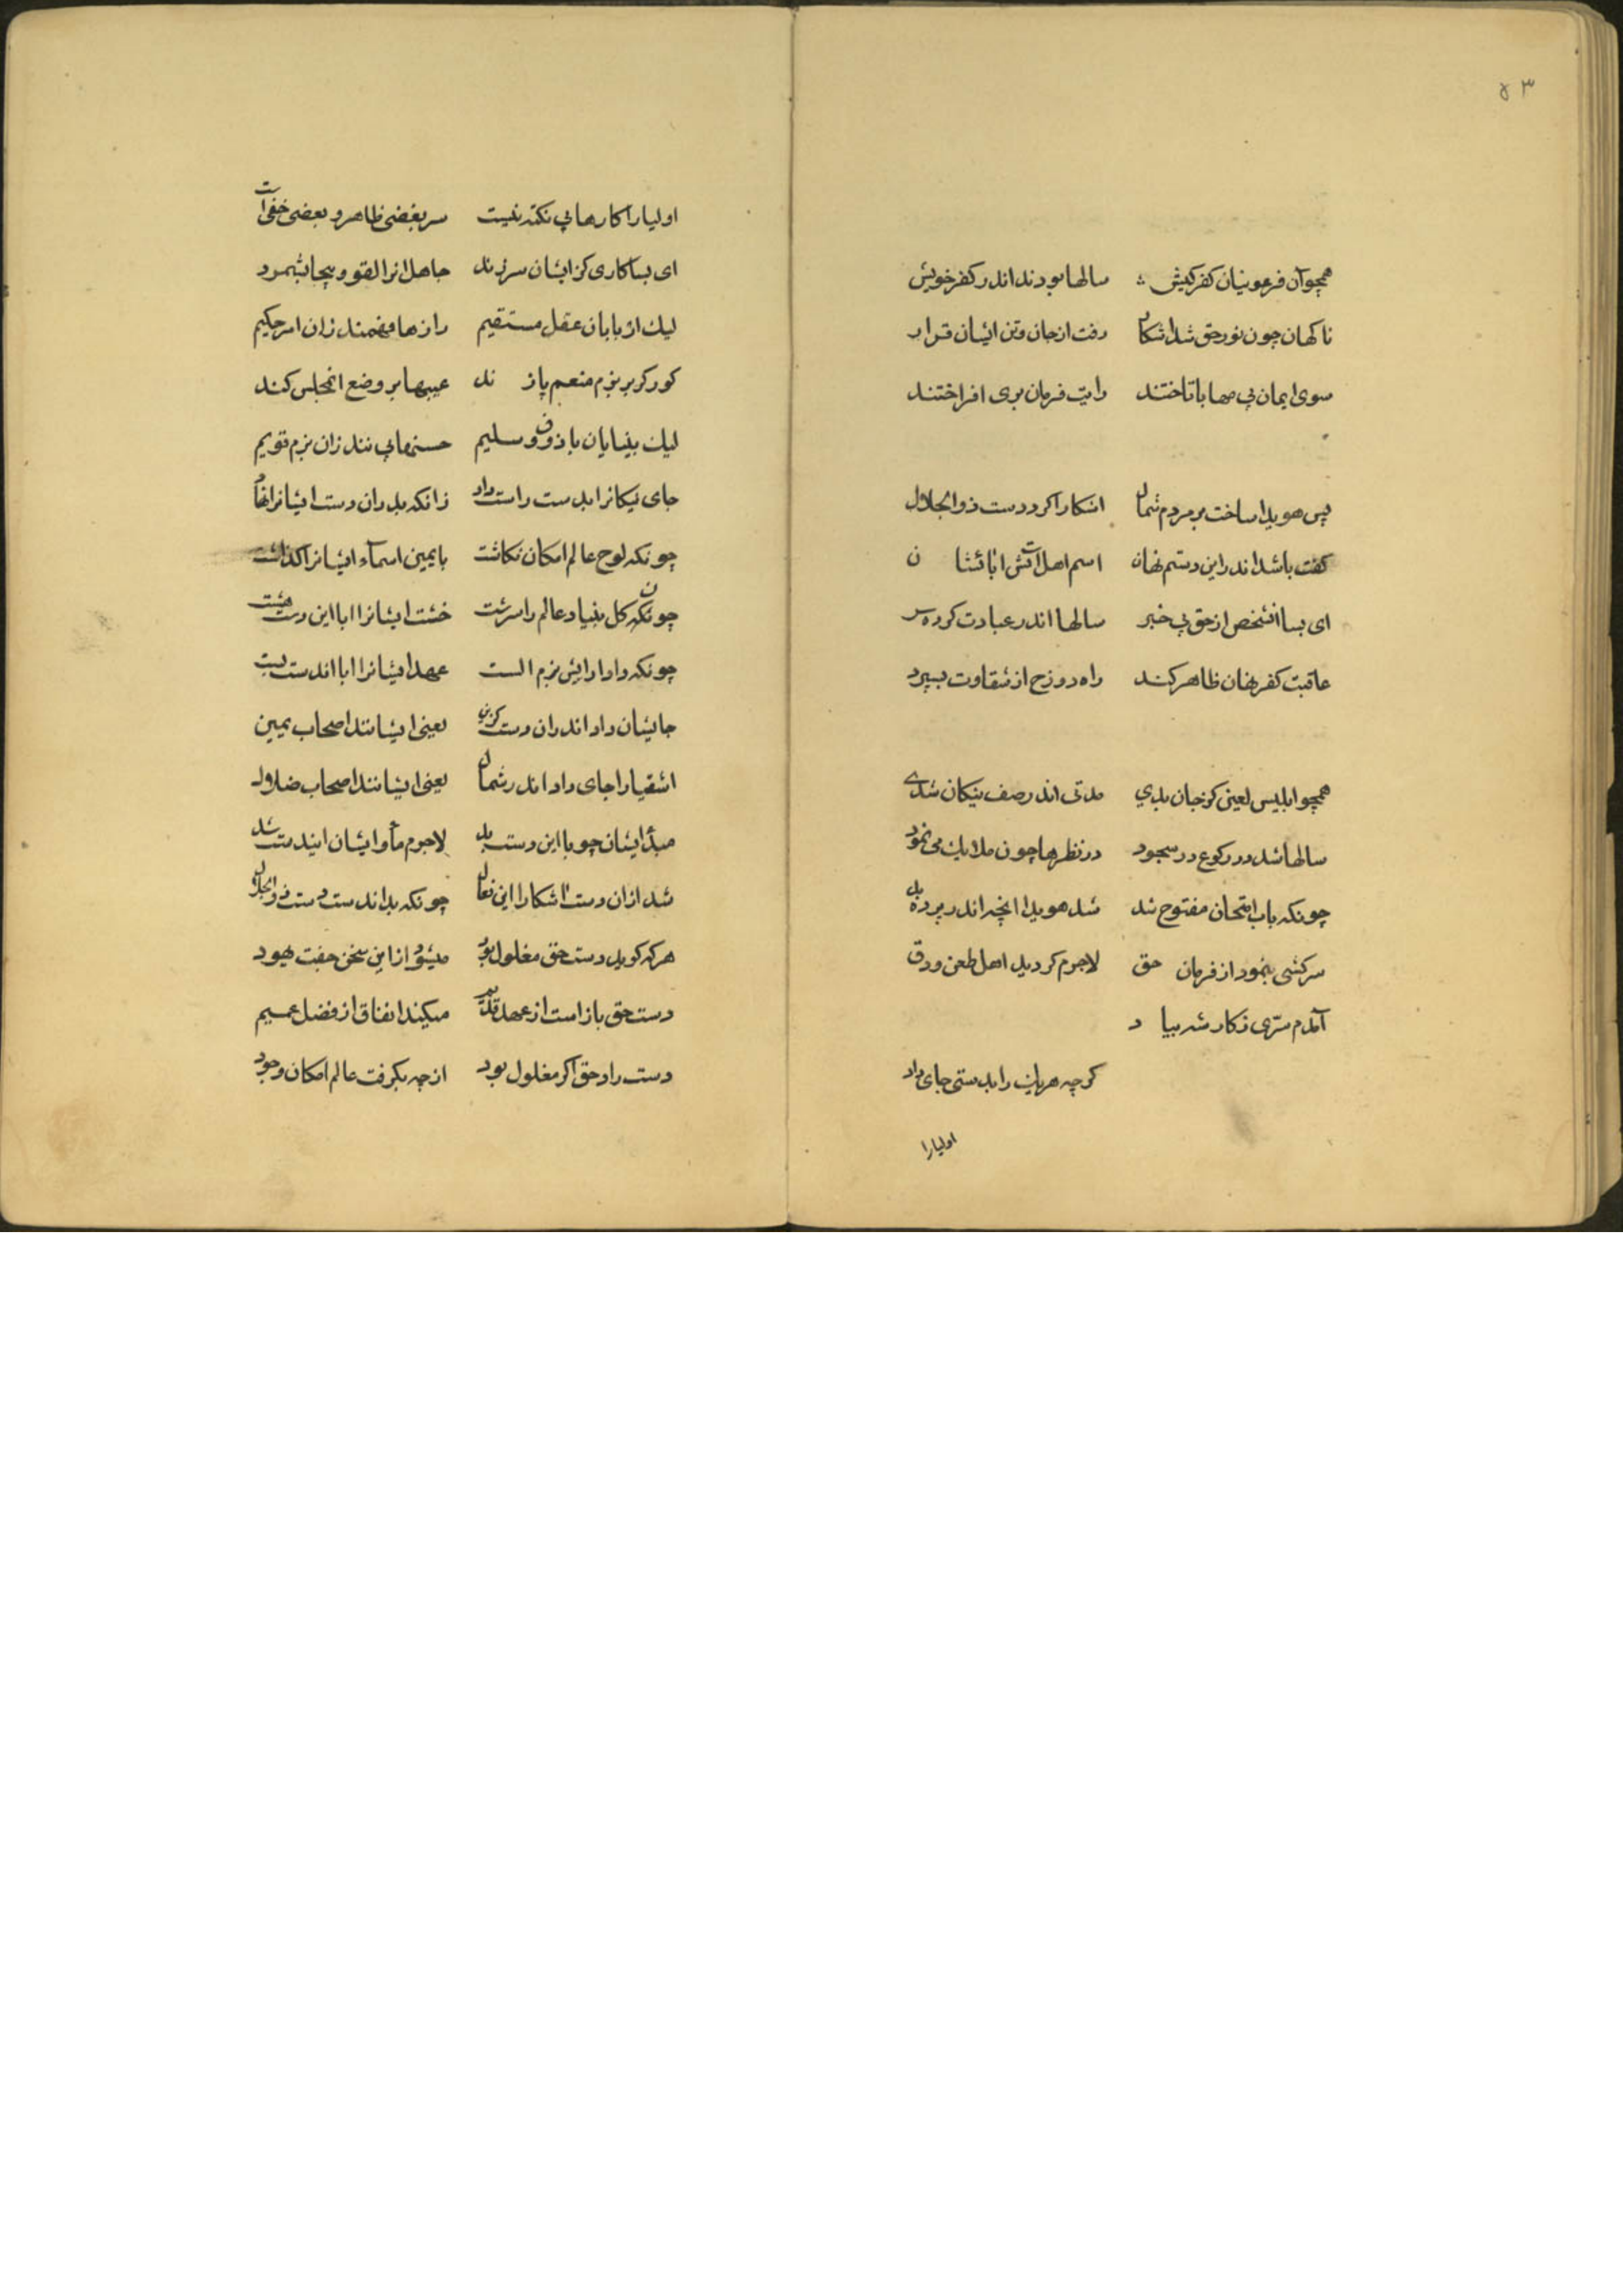 ۵۳
همچو آن فرعونیان کفر کیش سالها بودند اندر کفر خویش
ناکهان چون نور حق شد اشکار رفت از جان وتن ایشان قرار
سوی ایمان بی مهابا تاختند رایت فرمان بری افراختند
پس هویدا ساخت بر مردم شمال اشکارا کرد دست ذوالجلال
کفت باشد اندر این دستم نهان اسم اهل اتش ابا نشان
ای بسا انشخص از حق بی خبر سالها اندر عبادت کرده سر
عاقبت کفر نهان ظاهر کند راه دوزخ از شقاوت بسپرد
همچو ابلیس لعین کز جان بدی مدتی اندر صف نیکان شدی
سالها شد در رکوع در سجود در نظرها چون ملایک می نمود
چونکه باب امتحان مفتوح شد شد هویدا انچه اندر پرده بد
سرکشی بنمود از فرمان حق لاجرم کردید اهل طعن ودق
آمدم سری ز کار شه بیاد
کرچه هریک را بدستی جای داد
اولیارا
اولیارا کارها بی نکته نیست سر بعضی ظاهر و بعضی خفی است
ای بسا کاری کز ایشان سر زند جاهل انرا لغو و بیجا بشمرد
لیک اربابان عقل مستقیم رازها فهمند زان امر حکیم
کور کر بر بزم منعم پا زند عیبها بر وضع انمجلس کند
لیک بینایان با ذوق و سلیم حسنها بینند زان بزم قویم
جای نیکانرا بدست راست داد زانکه بد ران دست ایشانرا نهاد
چونکه لوح عالم امکان نکاشت با یمین اسماء ایشانرا کذاشت
چونکه کل بنیاد عالم را سرشت خشت ایشانرا ابا این دست هشت
چونکه داد ارایش بزم الست عهد ایشانرا ابا اندست بست
جایشان داد اندران دست کزین یعنی ایشانند اصحاب یمین
اشقیارا جای داد اندر شمال یعنی ایشانند اصحاب ضلال
مبدأ ایشان چو با این دست بد لاجرم مأوا ایشان ایندست شد
شد ازان دست اشکارا این فعال چونکه بد اندست دست ذوالجلال
هرکه کوید دست حق مغلول بود میشود از این سخن جفت یهود
دست حق باز است از عهد قدیم میکند انفاق از فضل عمیم
دست راد حق اکر مغلول بود از چه بکرفت عالم امکان وجود